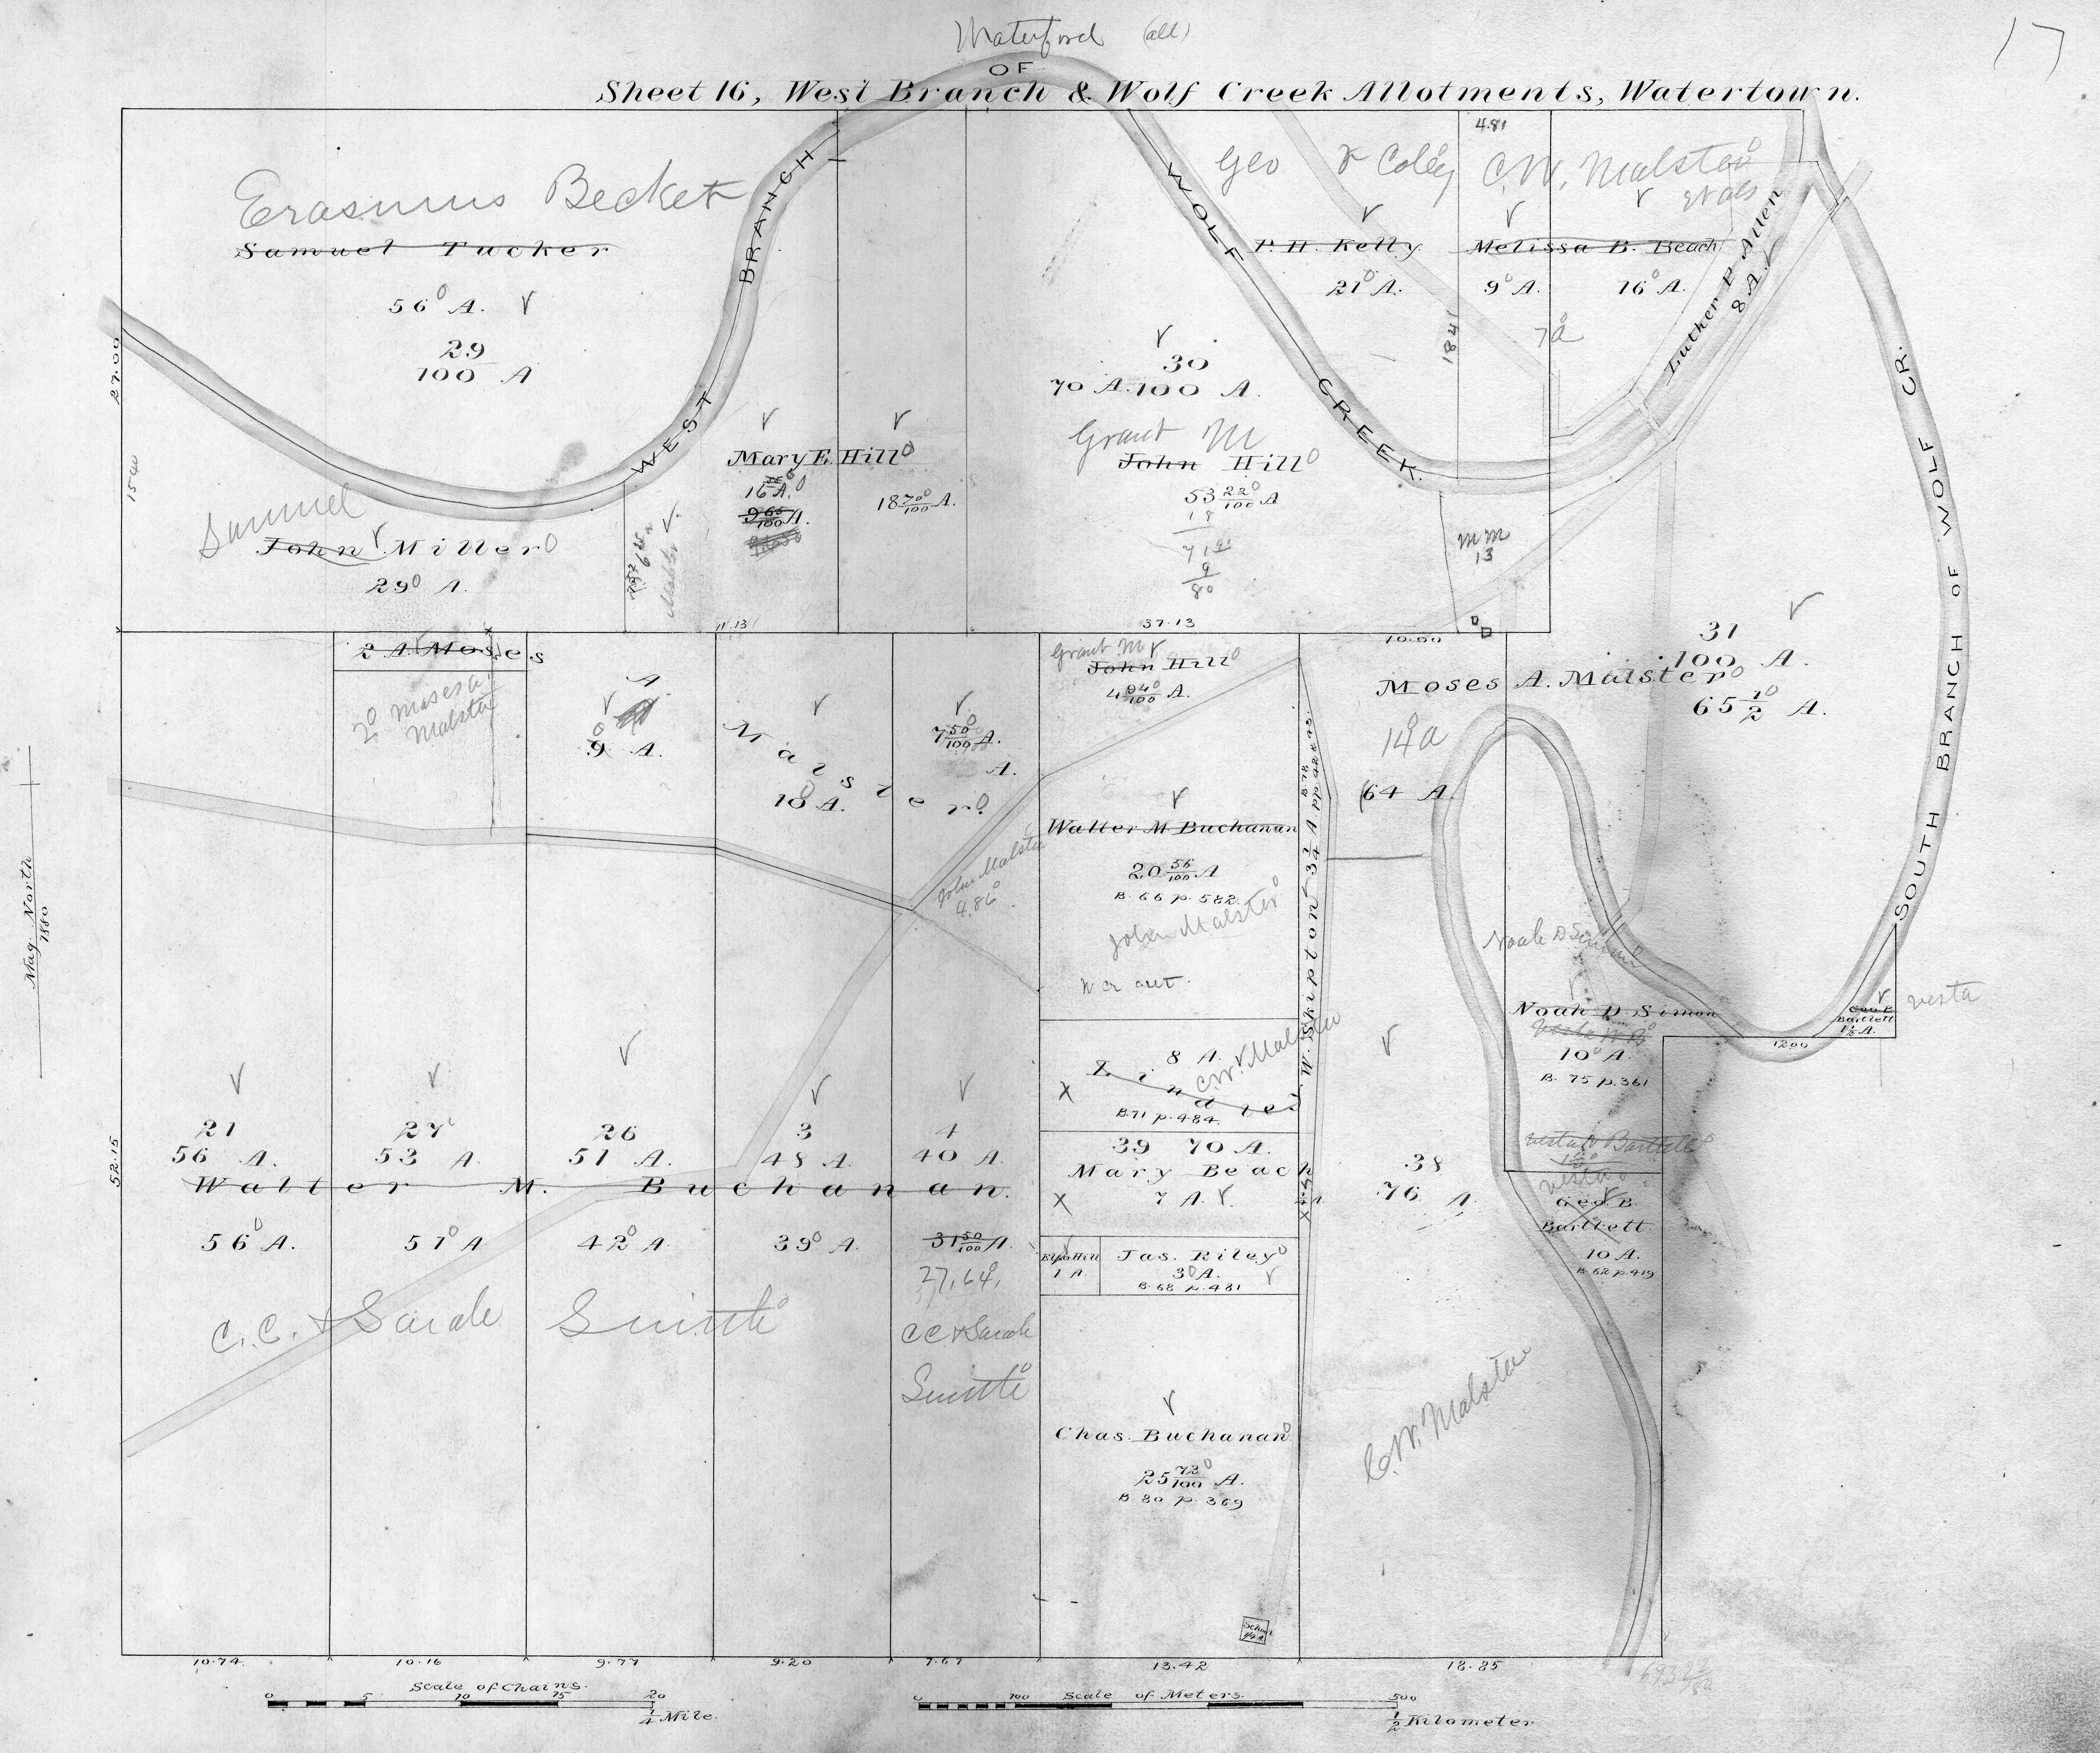 Waterford (all)
17
OF
Sheet 16, West Branch & Wolf Creek Allotments, Watertown.
Erasmus Becket
Samuel Tucker
56° A.
29
100 A
WEST BRANCH
27.00
15.40
Samuel
John Miller
29° A.
Mary E. Hill
16 A.
9 60/100 A.
18 70/100 A.
11.13
30
70 A. 100 A.
Grant M
John Hill
53 22/100 A
18
71
9
80
37.13
WOLF CREEK
Geo Coley
P. H. Kelly
21° A.
18 41
4.81
C. W. Malster
Melissa B. Beach
9° A.
16° A.
7 a
Luther P. Allen
8 A.
M M
13
10.60
SOUTH BRANCH OF WOLF CR.
31
100 A.
Moses A. Malster
65 1/2 A.
14 a
64 A.
2 A. Moses
2° Moses a.
Malster
A
9 A.
Malster
10 A.
7 50/100 A.
A.
Grant M
John Hill
4 94/100 A.
John Malster
4.86
Walter M Buchanan
20 56/100 A
B. 66 p. 582.
John Malster
W. Skipton 3 1/4 A
B. 78
8 A.
C.W. Malster
B. 71 p. 484
39 70 A.
Mary Beach
7 A.
1 A.
Jas. Riley
3° A.
B. 68 p. 481
Chas. Buchanan
25 72/100 A.
B. 80 p. 369
School
38
76 A.
C. W. Malster
Noah D. Simon
10° A.
B. 75 p. 361
Vesta Bartlett
Vesta
Geo. B.
Bartlett
10 A.
B. 62 p. 419
Geo B
Bartlett
1 1/2 A.
Vesta
12.00
Mag. North
1880
52.15
21
56 A.
27
53 A.
26
51 A.
3
48 A.
4
40 A.
Walter M. Buchanan.
56° A.
51° A
42° A.
39° A.
31 50/100 A.
27.64
C. C. & Sarah Smith
CC & Sarah
Smith
10.74
10.16
9.77
9.20
7.67
13.42
18.85
Scale of Chains.
0 5 10 15 20
1/4 Mile.
Scale of Meters.
0 100 500
1/2 Kilometer